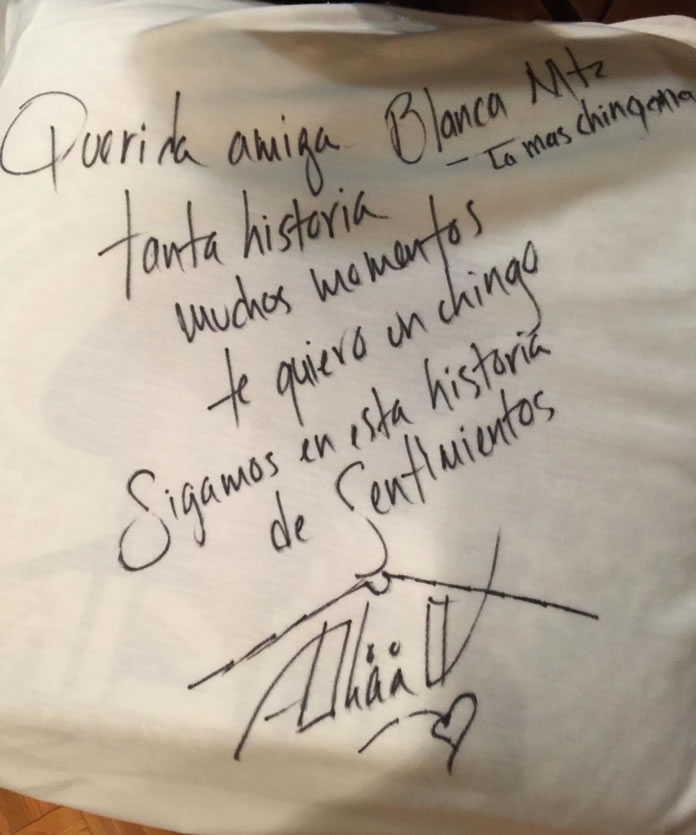 Querida amiga Blanca Mtz
– La mas chingona
tanta historia
muchos momentos
te quiero un chingo
Sigamos en esta historia
de Sentimientos